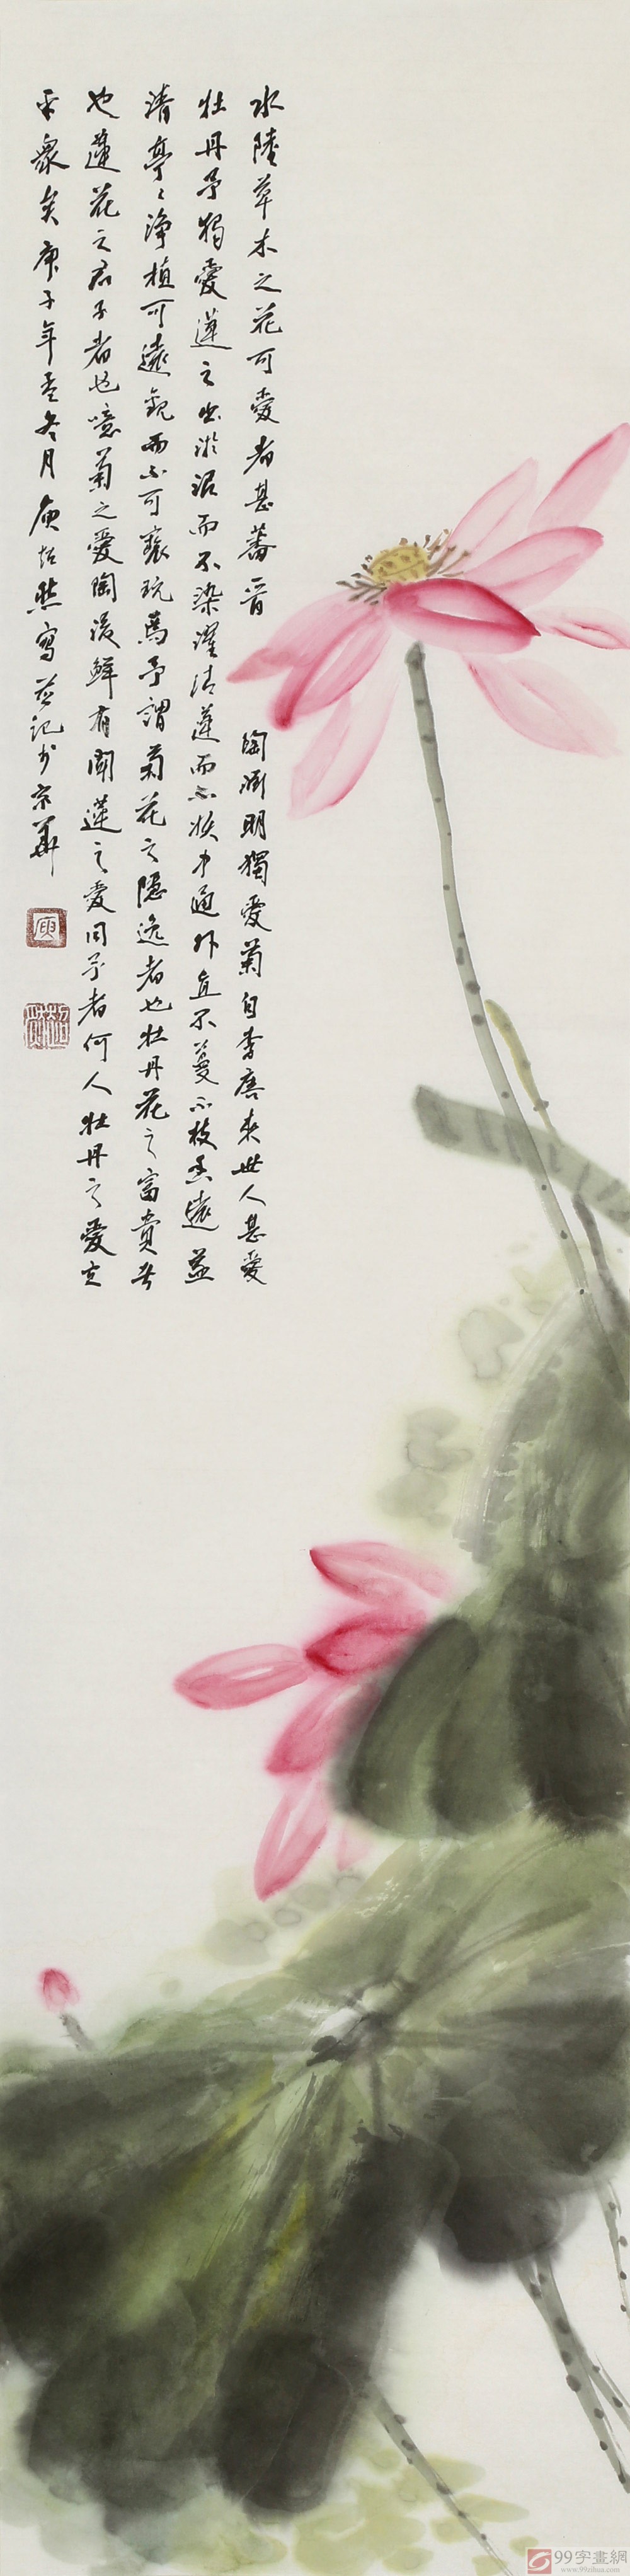 水陸草木之花可愛者甚蕃晋
陶渊明獨愛菊自李唐来世人甚愛
牡丹予獨愛蓮之出淤泥而不染濯清蓮而不妖中通外直不蔓不枝香遠益
清亭亭淨植可遠觀而不可褻玩焉予謂菊花之隱逸者也牡丹花之富貴者
也蓮花之君子者也噫菊之愛陶後鮮有聞蓮之愛同予者何人牡丹之愛宜
乎衆矣庚子年孟冬月 寫并記於京華
99字畫網
www.99zihua.com